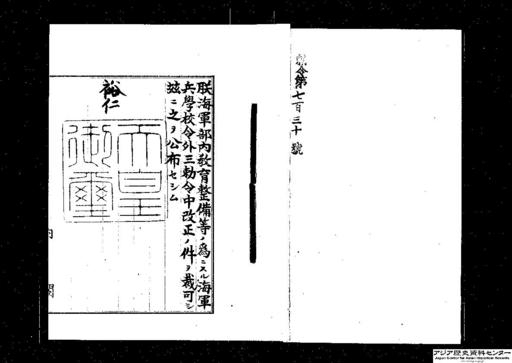 勅令第七百三十號
朕海軍部內敎育整備等ノ爲ニスル海軍
兵學校令外三勅令中改正ノ件ヲ裁可シ
玆ニ之ヲ公布セシム
裕仁
天皇
御璽
内閣
アジア歴史資料センター
Japan Center for Asian Historical Records